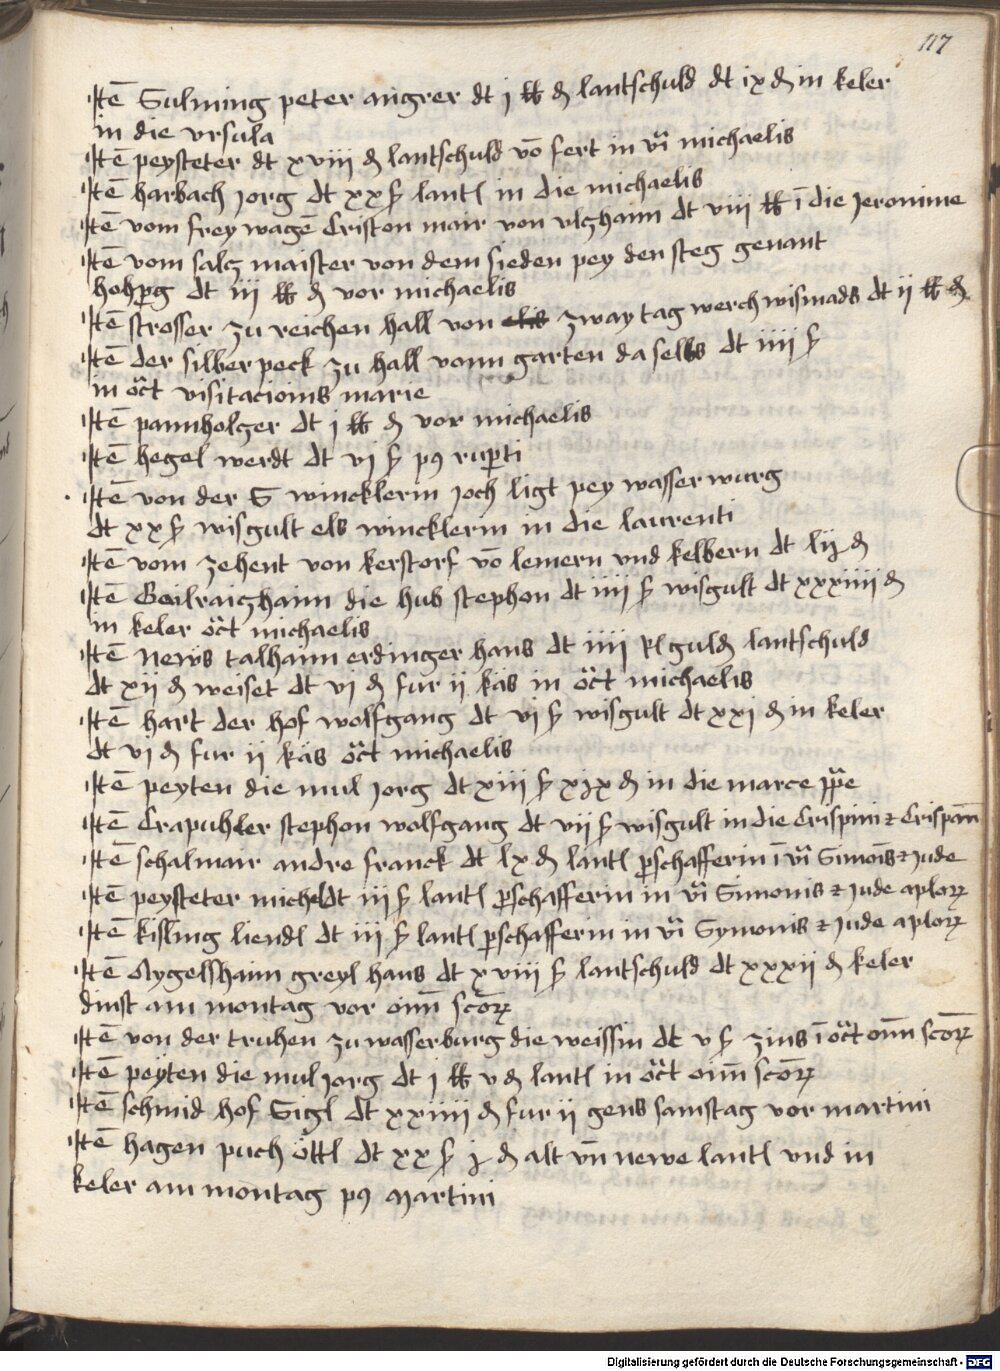 117
Itē Gulming peter angrer dt j ℔ ₰ lantschuld dt ix ₰ in keler
in die vrsula
Itē peysteter dt xviii ₰ lantschuld vō fert in vi͛ michaelis
Itē harbach Jorg dt xx ß lantl in die michaelis
Itē vom frey wagē Criston mair von vlzhaim dt viii ℔ ī die Jeronime
Itē vom salz maister von dem sieden pey den steg genant
dt iii ℔ ₰ vor michaelis
Itē strosser zu reichen hall von zway tag werch wismads dt ii ℔ ₰
Itē der silberpeck zu hall vonn garten daselbs dt iiii ß
in oct̄ visitacionis marie
Itē pannholzer dt j ℔ ₰ vor michaelis
Itē hegel werdt dt vj ß pꝰ rup̄ti
Itē von der G wincklerin Joch ligt pey wasserwurg
dt xx ß wisgult els wincklerin in die laurenti
Itē vom zehent von kerstorf vō lemern vnd kelbern dt lij ₰
Itē Geilraizhaim die hub stephon dt iiii ß wisgult dt xxxiiii ₰
in keler oct̄ michaelis
Itē News talhaim erdinger hans dt iiii Rl guld lantschuld
dt xii ₰ weiset dt vi ₰ fur ii käs in oct̄ michaelis
Itē hart der hof wolfgang dt vi ß wisgult dt xxi ₰ in keler
dt vi ₰ fur ii käs oct̄ michaelis
Itē peyten die mul Jorg dt xiii ß xix ₰ in die marce pp̄e
Itē Crapuhler stephon wolfgang dt vii ß wisgult in die Crispini ⁊ Crispam̄
Itē schalmair andre franck dt lx ₰ lantl p̄schafferin ī vi͛ Simois ⁊ Jude
Itē peysteter michel dt iii ß lantl p̄schafferin in vi͛ Simonis ⁊ Jude aplorꝝ
Itē kisling liendl dt iii ß lantl p̄schafferin in vi͛ Symonis ⁊ Jude aplorꝝ
Itē Aygelshaim greyl hans dt xviii ß lantschuld dt xxxii ₰ keler
dinst am montag vor oīm scōrꝝ
Itē von der truhen zu wasserburg die weissin dt v ß zins ī oct̄ oīm scōrꝝ
Itē peyten die mul Jorg dt j ℔ v ₰ lantl in oct̄ oīm scōrꝝ
Itē schmid hof Sigl dt xxiiii ₰ fur ii gens samstag vor martini
Itē hagen puch öttl dt xx ß j ₰ alt vn̄ newe lantl vnd in
keler am montag pꝰ Martini
Digitalisierung gefördert durch die Deutsche Forschungsgemeinschaft - DFG